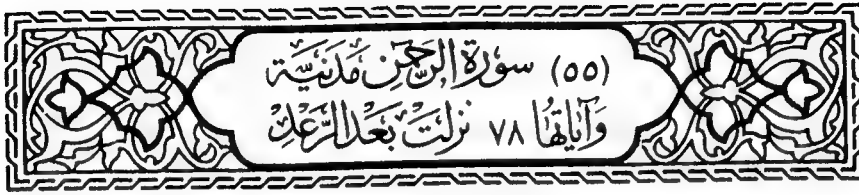 (٥٥) سورة الرحمن مدنية
وآياتها ٧٨ نزلت بعد الرعد